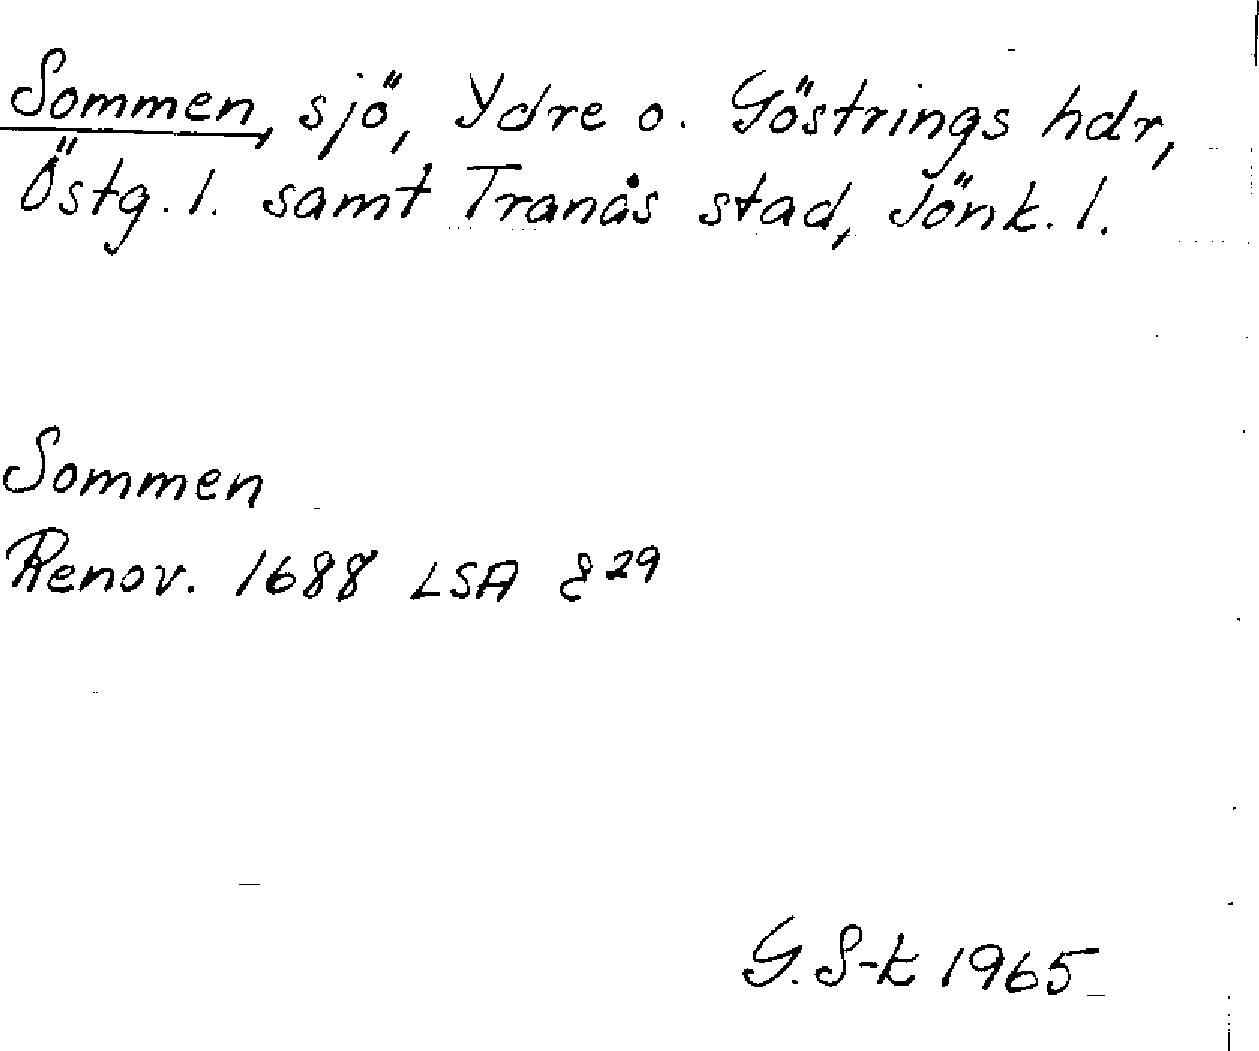 Sommen, sjö, Ydre o. Göstrings hdr,
Östg. l. samt Tranås stad, Jönk. l.
Sommen
Renov. 1688 LSA E 29
G. S-k 1965